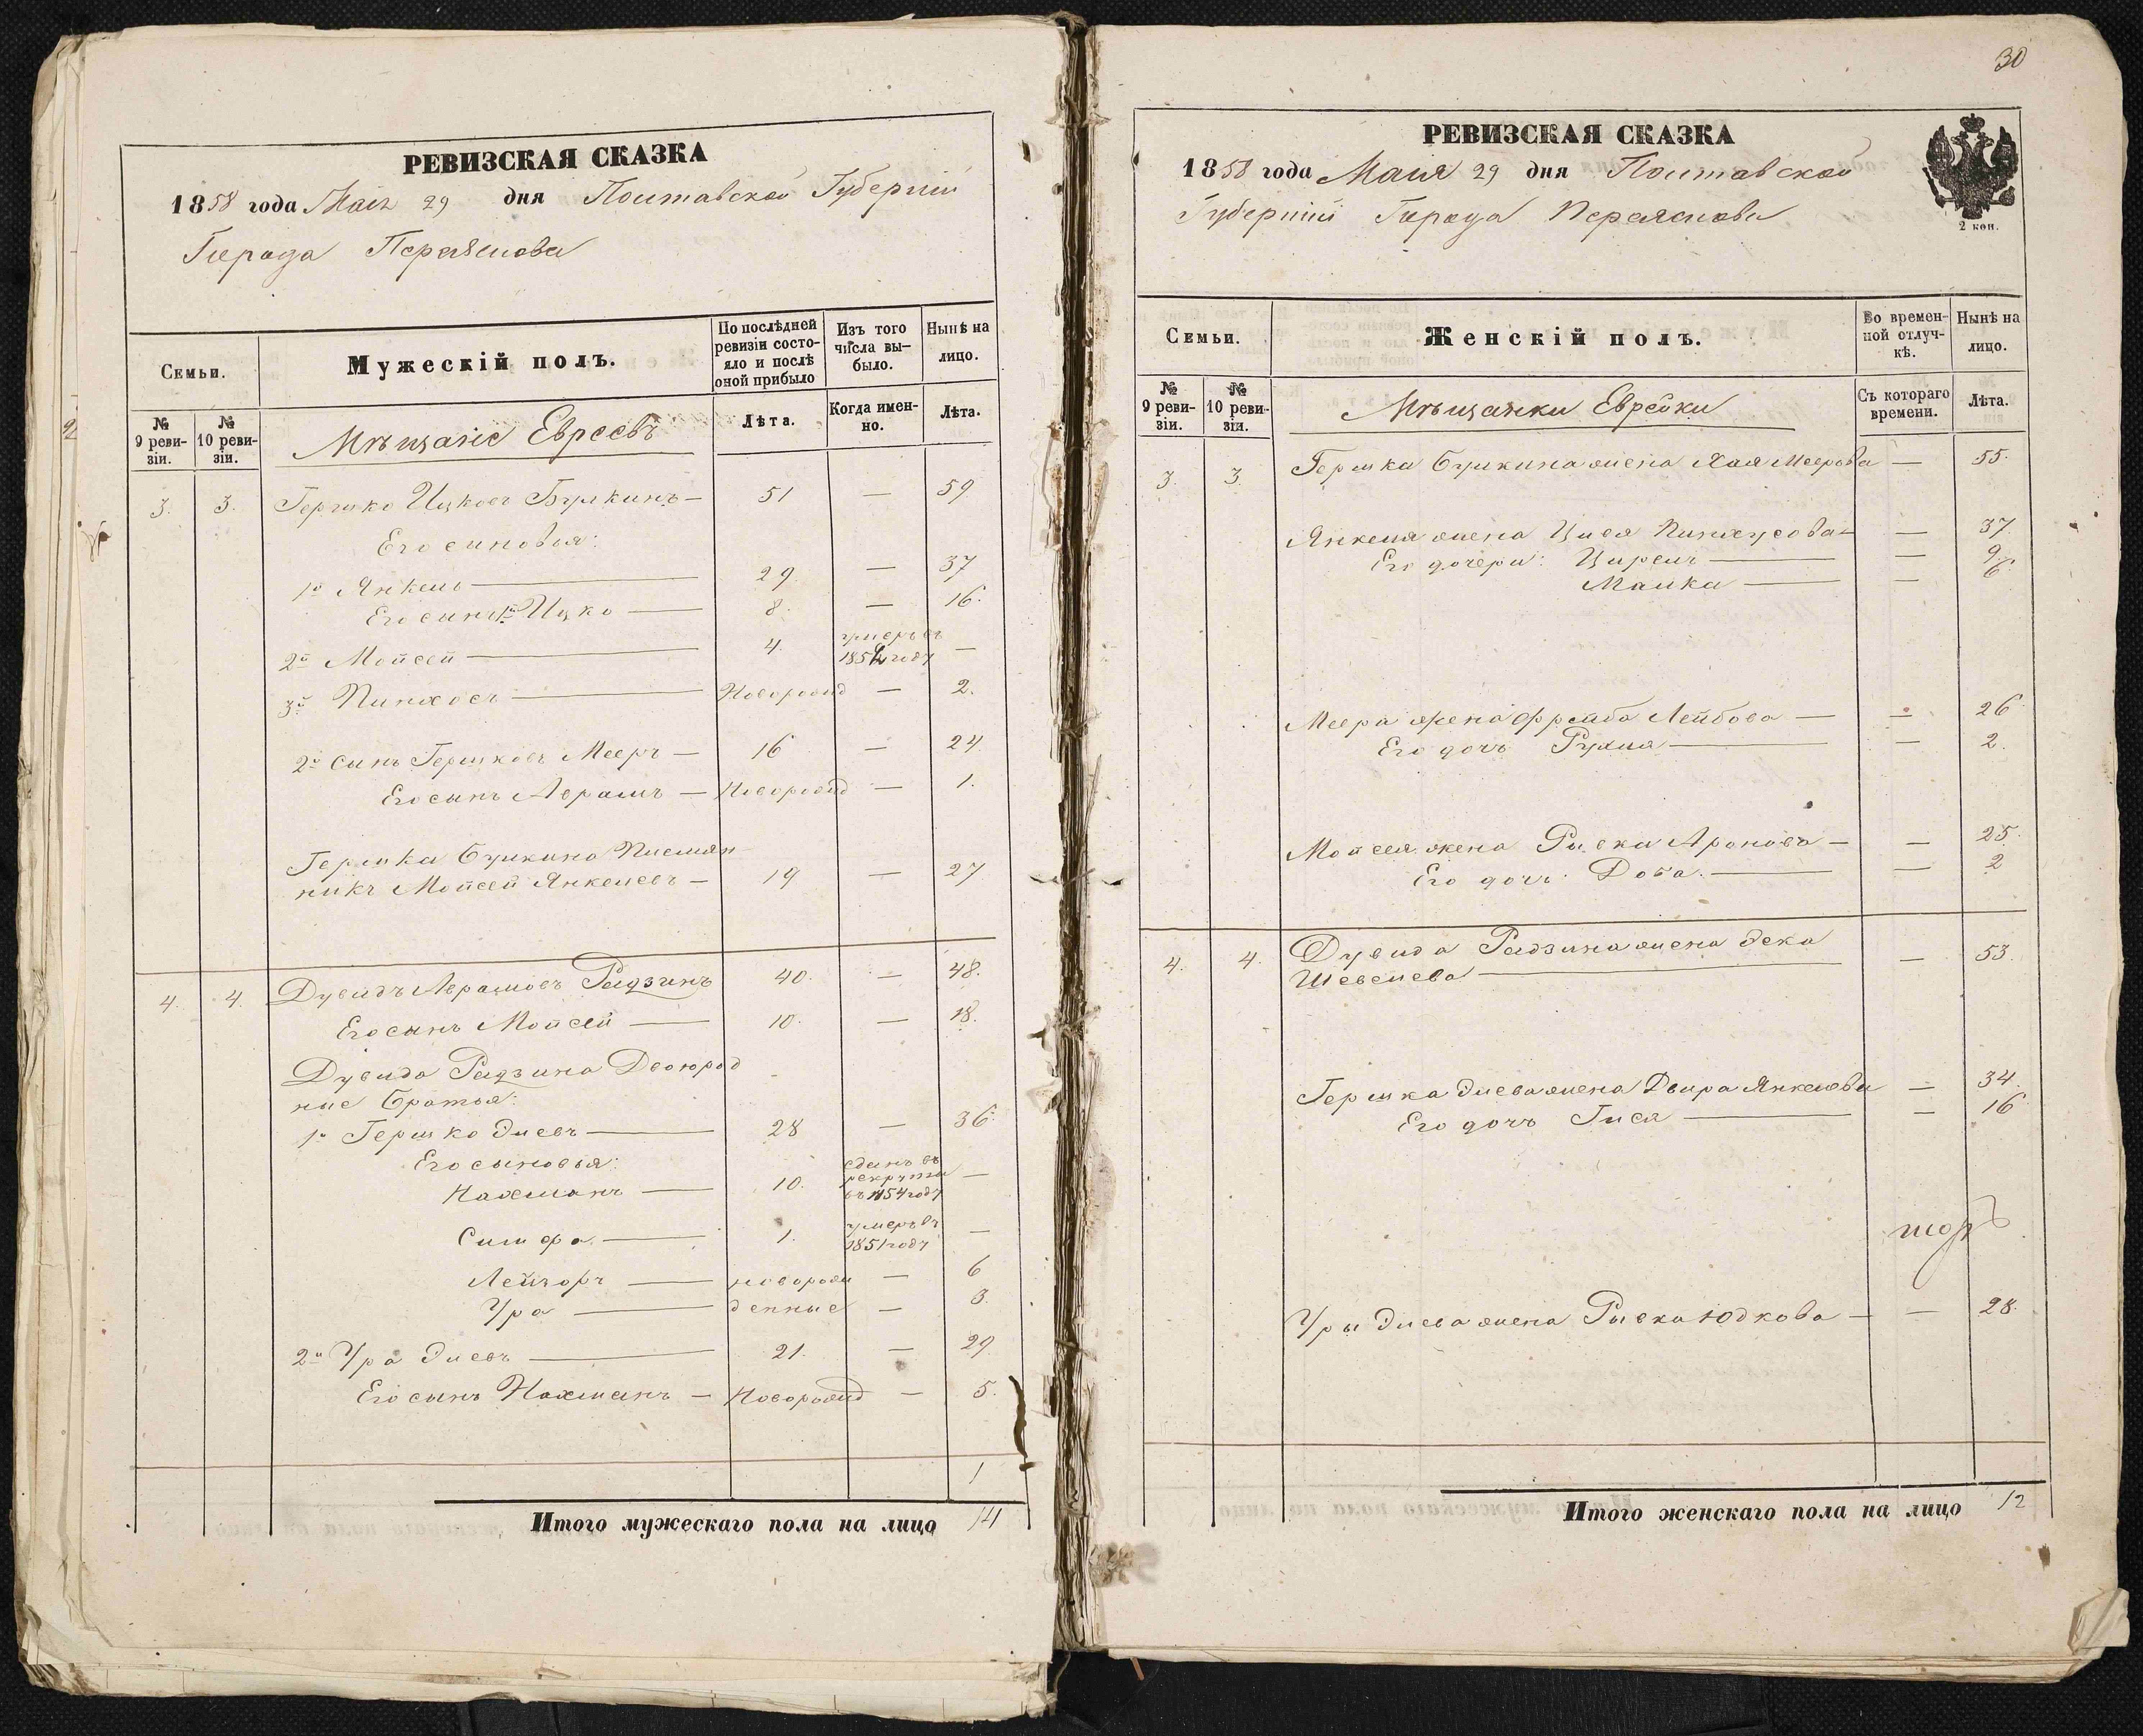 РЕВИЗСКАЯ СКАЗКА
1858 года Маія 29 дня Полтавской Губерніи
Города Переяслова
Семьи.
Мужескій полъ.
По послѣдней ревизіи состояло и послѣ оной прибыло
Изъ того числа выбыло.
Нынѣ на лицо.
№ 9 ревизіи.
№ 10 ревизіи.
Мѣщане Евреевъ
Лѣта.
Когда именно.
Лѣта.
3. 3. Гершко Ицковъ Булкинъ — 51 — 59
Его синовья:
1й Янкель — 29 — 37
Его синъ 1й Ицко — 8. — 16.
2й Мойсей — 4. умеръ въ 1852 году —
3й Пинхосъ — Новорожд — 2.
2й сынъ Гершковъ Мееръ — 16 — 24
Его сынъ Аврамъ — Новорожд — 1.
Гершка Булкина Племян
никъ Мойсей Янкелевъ — 19 — 27
4. 4. Дувидъ Аврамовъ Радзинъ 40. — 48.
Его сынъ Мойсей — 10. — 18.
Дувида Радзина Двоюрод
ные Братья:
1й Гершко Эпевъ — 28 — 36
Его сыновья:
Нахманъ — 10. сданъ въ рекруты въ 1854 году —
1. умеръ въ 1851 году —
Лейзоръ — новорож — 6
Ура — денные — 3.
2й Ура — 21. — 29
Его сынъ Нахманъ — Новорожд — 5.
1
Итого мужескаго пола на лицо 14
30
РЕВИЗСКАЯ СКАЗКА
1858 года Маия 29 дня Полтавской
Губерніи Города Переяслова
2 коп.
Семьи.
Женскій полъ.
Во временной отлучкѣ.
Нынѣ на лицо.
№ 9 ревизіи.
№ 10 ревизіи.
Мѣщанки Еврейки
Съ котораго времени.
Лѣта.
3. 3. Гершка Булкина жена Хая Меерова — 55.
Янкеля жена Цися Пинхусова — 37
Его дочери: Цирель — 9.
Малка — 6.
Меера жена Фрейда Лейбова — 26
Его дочь Рухля — 2.
Мойсея жена Ривка Аронова — 25.
Его дочь: Доба. — 2
4. 4. Дувида Радзина жена
Шевелева — 53.
Гершка жена Двира Янкелева — 34.
Его дочь Гися — 16
Уры жена Ривка Юдкова — 28.
Итого женскаго пола на лицо 12